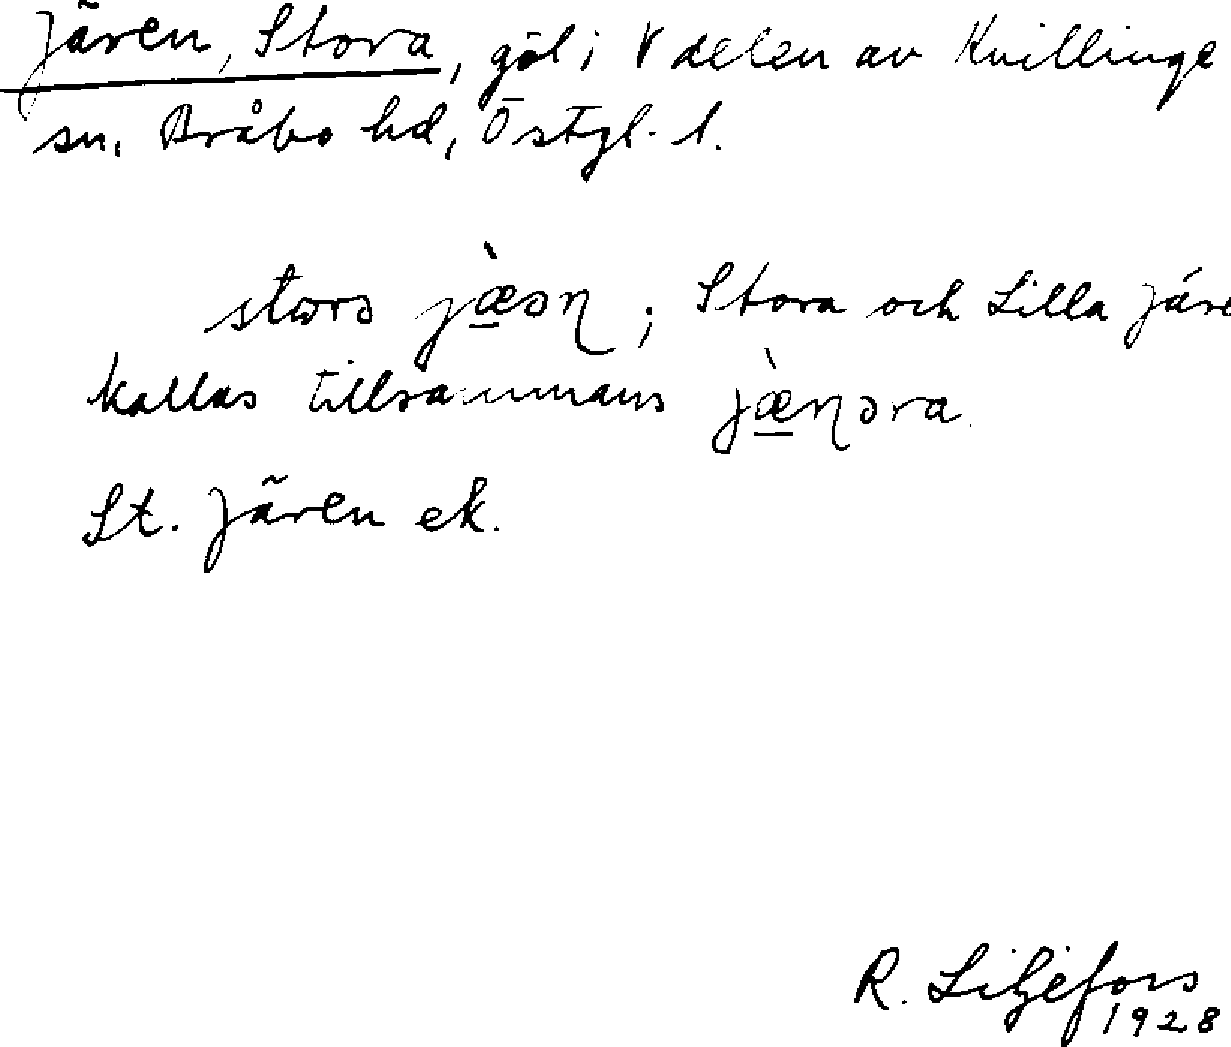 Jären, Stora, göl i V delen av Kvillinge
sn, Bråbo hd, Östgl. l.
storə jæ̀ən ; Stora och Lilla Järe
kallas tillsammans jæ̀nəra.
St. Jären ek.
R. Liljefors
1928